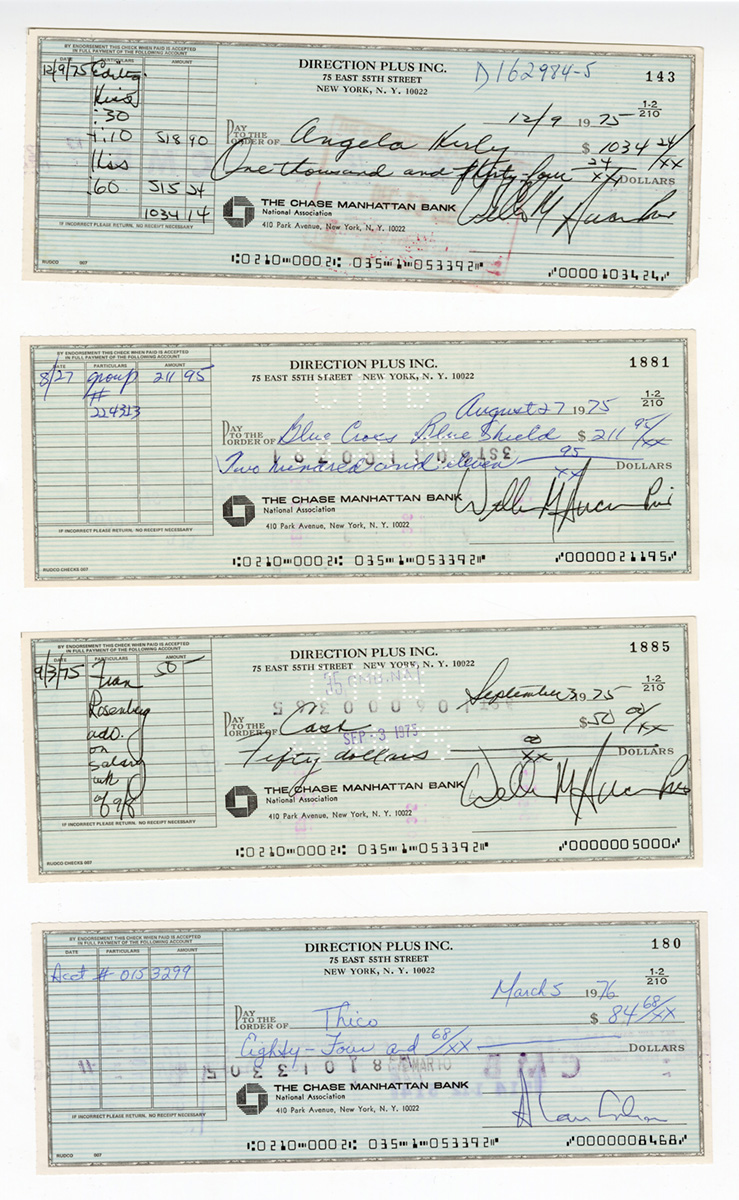 BY ENDORSEMENT THIS CHECK WHEN PAID IS ACCEPTED
IN FULL PAYMENT OF THE FOLLOWING ACCOUNT
DATE PARTICULARS AMOUNT
12/9/75
:30
518 90
:60 515 24
1034 14
IF INCORRECT PLEASE RETURN. NO RECEIPT NECESSARY
RUDCO 007
DIRECTION PLUS INC.
75 EAST 55TH STREET
NEW YORK, N. Y. 10022
D162984-5
143
1-2
210
12/9 1975
PAY
TO THE
ORDER OF Angela Kirby $ 1034 24/XX
One thousand and thirty four 24/XX DOLLARS
THE CHASE MANHATTAN BANK
National Association
410 Park Avenue, New York, N. Y. 10022
⑆0210⑉0002⑆ 035⑉1⑉053392⑈
⑇0000103424⑇
BY ENDORSEMENT THIS CHECK WHEN PAID IS ACCEPTED
IN FULL PAYMENT OF THE FOLLOWING ACCOUNT
DATE PARTICULARS AMOUNT
8/27 group 211 95
#
224313
IF INCORRECT PLEASE RETURN. NO RECEIPT NECESSARY
RUDCO CHECKS 007
DIRECTION PLUS INC.
75 EAST 55TH STREET NEW YORK, N. Y. 10022
1881
1-2
210
August 27 1975
PAY
TO THE
ORDER OF Blue Cross Blue Shield $ 211 95/XX
Two hundred and eleven 95/XX DOLLARS
THE CHASE MANHATTAN BANK
National Association
410 Park Avenue, New York, N. Y. 10022
⑆0210⑉0002⑆ 035⑉1⑉053392⑈
⑇0000021195⑇
BY ENDORSEMENT THIS CHECK WHEN PAID IS ACCEPTED
IN FULL PAYMENT OF THE FOLLOWING ACCOUNT
DATE PARTICULARS AMOUNT
9/3/75 Fran 50-
Rosenberg
adv.
on
salary
wk
of 9/8
IF INCORRECT PLEASE RETURN. NO RECEIPT NECESSARY
RUDCO CHECKS 007
DIRECTION PLUS INC.
75 EAST 55TH STREET NEW YORK, N. Y. 10022
1885
1-2
210
September 3 1975
PAY
TO THE
ORDER OF Cash $ 50 00/XX
SEP -3 1975
Fifty dollars 00/XX DOLLARS
THE CHASE MANHATTAN BANK
National Association
410 Park Avenue, New York, N. Y. 10022
⑆0210⑉0002⑆ 035⑉1⑉053392⑈
⑇0000005000⑇
BY ENDORSEMENT THIS CHECK WHEN PAID IS ACCEPTED
IN FULL PAYMENT OF THE FOLLOWING ACCOUNT
DATE PARTICULARS AMOUNT
Acct # 015 3299
IF INCORRECT PLEASE RETURN. NO RECEIPT NECESSARY
RUDCO 007
DIRECTION PLUS INC.
75 EAST 55TH STREET
NEW YORK, N. Y. 10022
180
1-2
210
March 5 1976
PAY
TO THE
ORDER OF Thico $ 84 68/XX
Eighty-Four and 68/XX DOLLARS
THE CHASE MANHATTAN BANK
National Association
410 Park Avenue, New York, N. Y. 10022
⑆0210⑉0002⑆ 035⑉1⑉053392⑈
⑇0000008468⑇